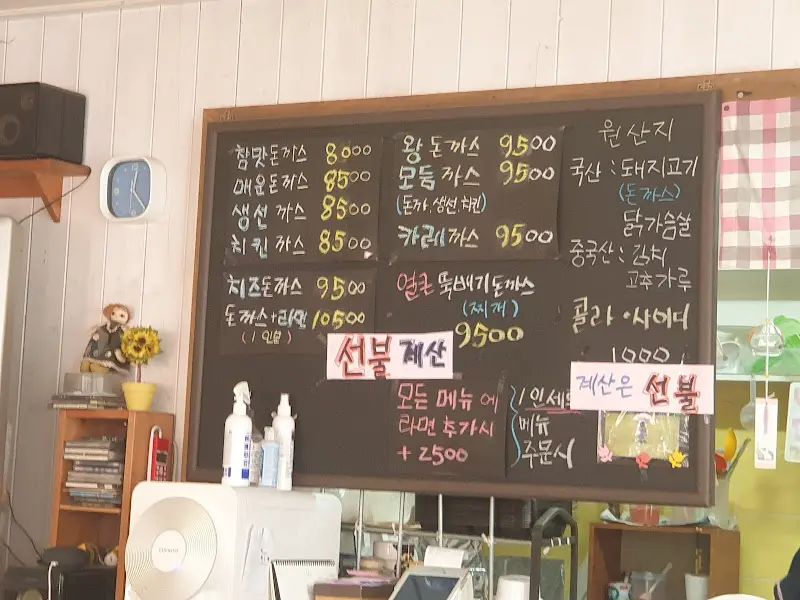 참맛돈까스 8000
매운돈까스 8500
생선까스 8500
치킨까스 8500
치즈돈까스 9500
돈까스+라면 10500
(1인분)
왕돈까스 9500
모듬까스 9500
(돈까,생선,치킨)
카레까스 9500
얼큰 뚝배기돈까스
(찌개)
9500
선불 계산
모든 메뉴에
라면 추가시
+2500
1인세트
메뉴
주문시
원산지
국산 : 돼지고기
(돈까스)
닭가슴살
중국산 : 김치
고추가루
콜라·사이다
1000
계산은 선불